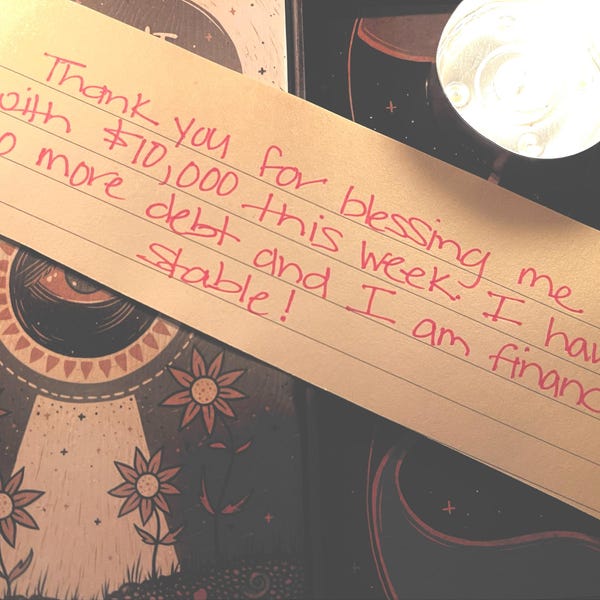 Thank you for blessing me
with $10,000 this week. I hav
o more debt and I am financ
stable!